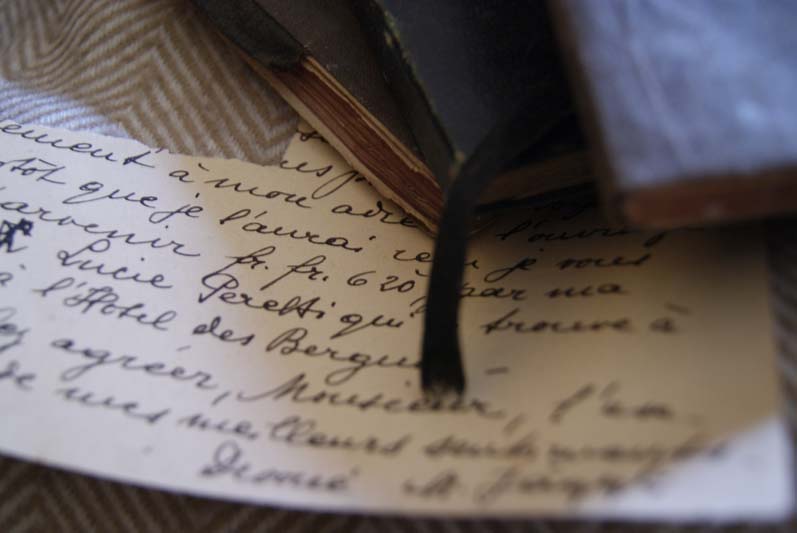 ement à mon adre l'ouvr
tôt que je l'aurai reçu je vous
arvenir fr. fr. 620 par ma
Lucie Peretti qui trouve à
à l'Hotel des Bergu
agréer, Monsieur, l'em-
de mes meilleurs sentiments